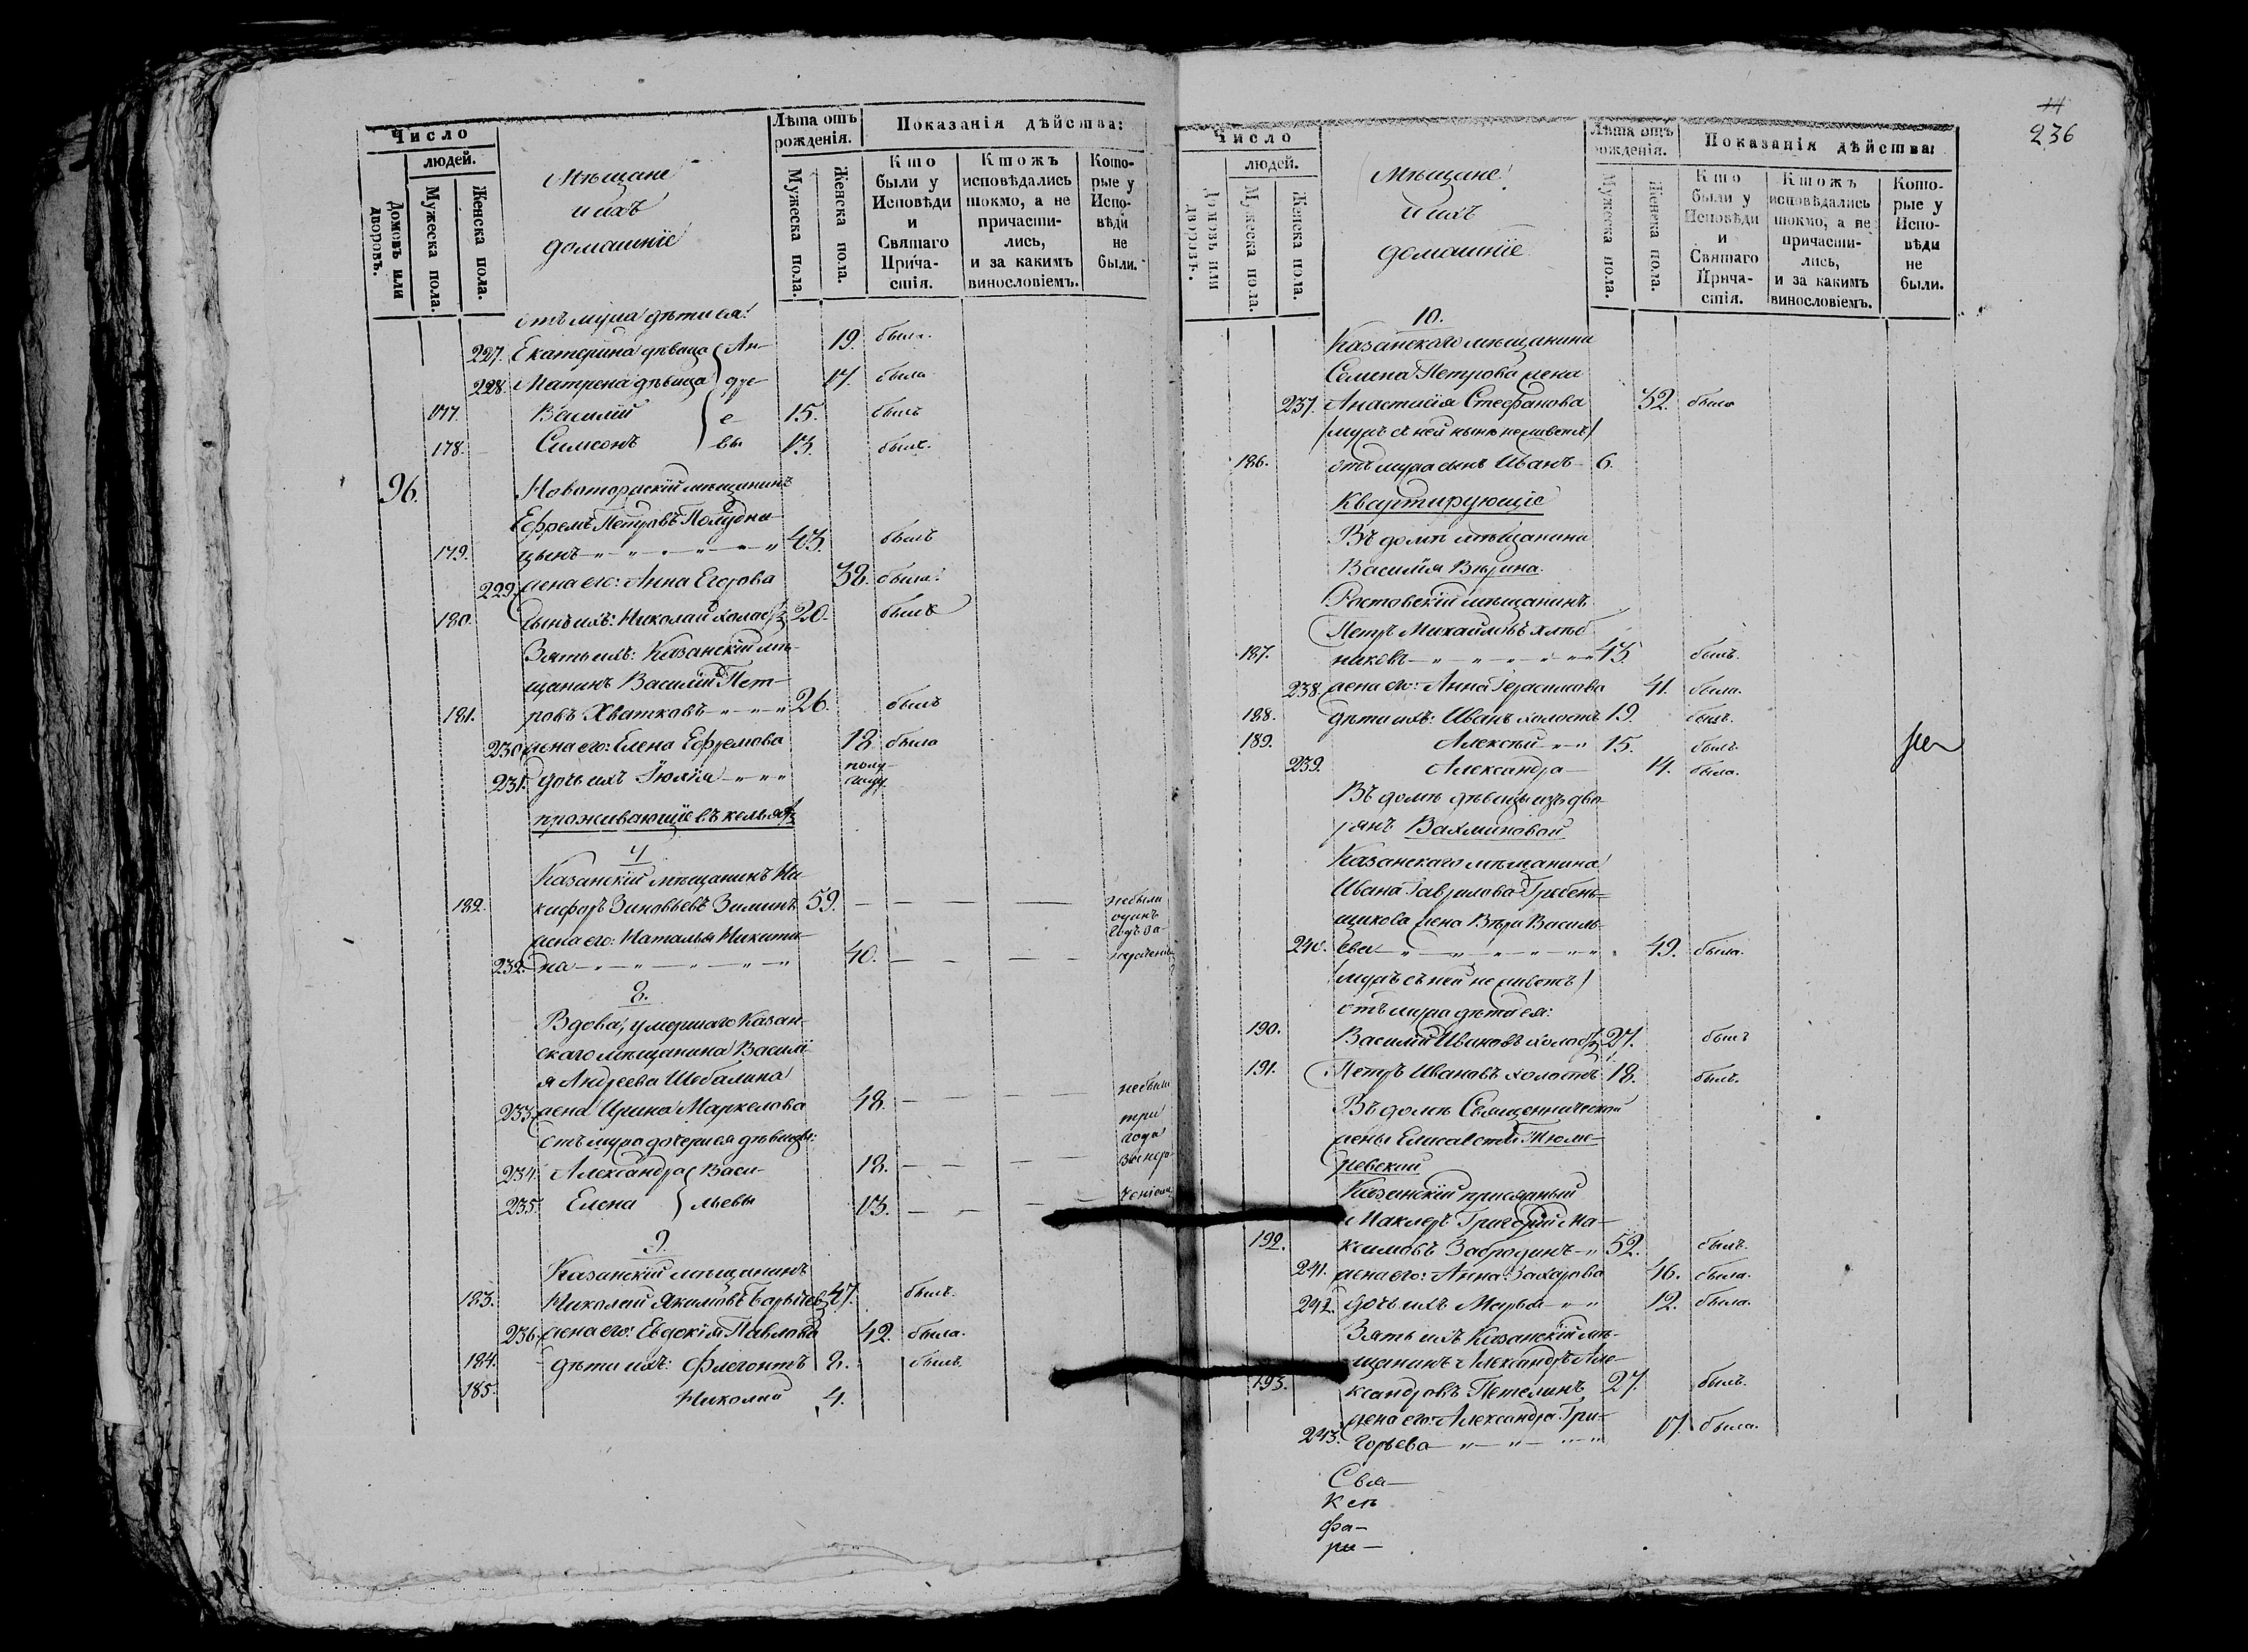 Число
людей.
Домовъ или дворовъ.
Мужеска пола.
Женска пола.
Мѣщане
и ихъ
домашніе
Лѣта отъ рожденія.
Мужеска пола.
Женска пола.
Показанія дѣйства:
Кто были у Исповѣди и Святаго Причастія.
Ктожъ исповѣдались токмо, а не причастились, и за какимъ винословіемъ.
Которые у Исповѣди не были.
отъ мужа дѣти ея:
227. Екатерина дѣвица Ан- 19. была.
228. Матрена дѣвица дре- 17. была
177. Василій е- 15. былъ
178. Симеонъ вы 13. былъ.
96. Новоторжскій мѣщанинъ
Ефремъ Петровъ
179. цынъ 43. былъ
229. жена его: Анна Егорова 38. была.
180. сынъ ихъ: Николай холос 20. былъ
Зять ихъ: Казанскій мѣ-
щанинъ Василій Пет-
181. ровъ Хватковъ 26. былъ
230. жена его: Елена Ефремова 18. была
231. дочь ихъ Юлія полу-
году
проживающіе въ кельяхъ
7
Казанскій мѣщанинъ Ни-
182. кифоръ Зиновьевъ Зиминъ 59. — — — — небыли
одинъ
годъ за
жена его: Наталья Никити-
232. на 40. — — — —
8.
Вдова, умершаго Казан-
скаго мѣщанина Василі-
я Андреева Шебалина
233. жена Ирина Маркелова 48. — — — — небыли
три
года
отъ мужа дочери ея дѣвицы:
234. Александра Васи- 18. — — — —
235. Елена льевы 13. — — — —
9.
Казанскій мѣщанинъ
183. Николай Якимовъ 47. былъ.
236. жена его: Евдокія Павлова 42. была.
184. дѣти ихъ: Флегонтъ 8. былъ.
185. Николай 4.
11
236
Число
людей.
Домовъ или дворовъ.
Мужеска пола.
Женска пола.
Мѣщане
и ихъ
домашніе
Лѣта отъ рожденія.
Мужеска пола.
Женска пола.
Показанія дѣйства:
Кто были у Исповѣди и Святаго Причастія.
Ктожъ исповѣдались токмо, а не причастились, и за какимъ винословіемъ.
Которые у Исповѣди не были.
10.
Казанскаго мѣщанина
Семена Петрова жена
237. Анастасія Стефанова 32. была
/мужъ съ ней нынѣ не живетъ/
186. отъ мужа сынъ Иванъ 6.
Квартирующіе
Въ домѣ мѣщанина
Василія Вѣрина.
Ростовскій мѣщанинъ
Петръ Михайловъ Хлѣб-
187. никовъ 43. былъ.
238. жена его: Анна Герасимова 41. была.
188. дѣти ихъ: Иванъ холостъ 19. былъ.
189. Алексѣй 15. былъ.
239. Александра 14. была.
Въ домѣ дѣвицы изъ дво-
рянъ Вахминовой
Казанскаго мѣщанина
Ивана Гаврилова Гребень-
щикова жена Вѣра Василь-
240. ева 49. была.
/мужъ съ ней не живетъ/
отъ мужа дѣти ея:
190. Василій Ивановъ холос 27. былъ
191. Петръ Ивановъ холостъ 18. былъ.
Въ домѣ Священнической
жены Елисаветы
Казанскій присяжный
Маклеръ Григорій Ма-
192. ксимовъ Забродинъ 52. былъ.
241. жена его: Анна Захарова 46. была.
242. дочь ихъ Марья 12. была.
Зять ихъ Казанскій мѣ-
щанинъ Александръ Але-
193. ксандровъ Петелинъ 27. былъ.
жена его: Александра Гри-
243. горьева 17. была.
Свя-
ксъ
фа-
ри-